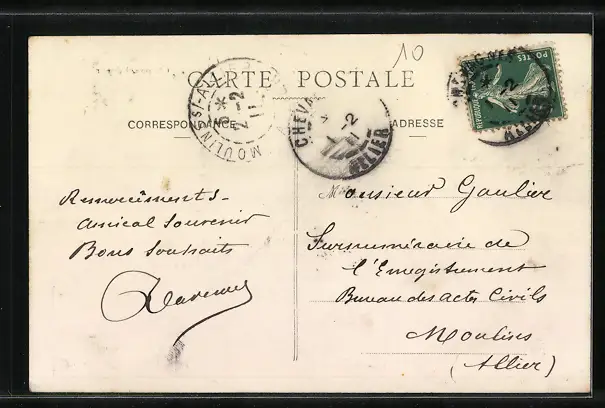 10
CARTE POSTALE
CORRESPONDANCE
ADRESSE
MOULINS S/-ALLIER
2-2
11
CHEVA
1-2
11
ALLIER
POSTES
Remerciements-
Amical Souvenir
Bons Souhaits
Monsieur Gaulier
Surnuméraire de
l'Enregistrement
Bureau des actes Civils
Moulins
(Allier)